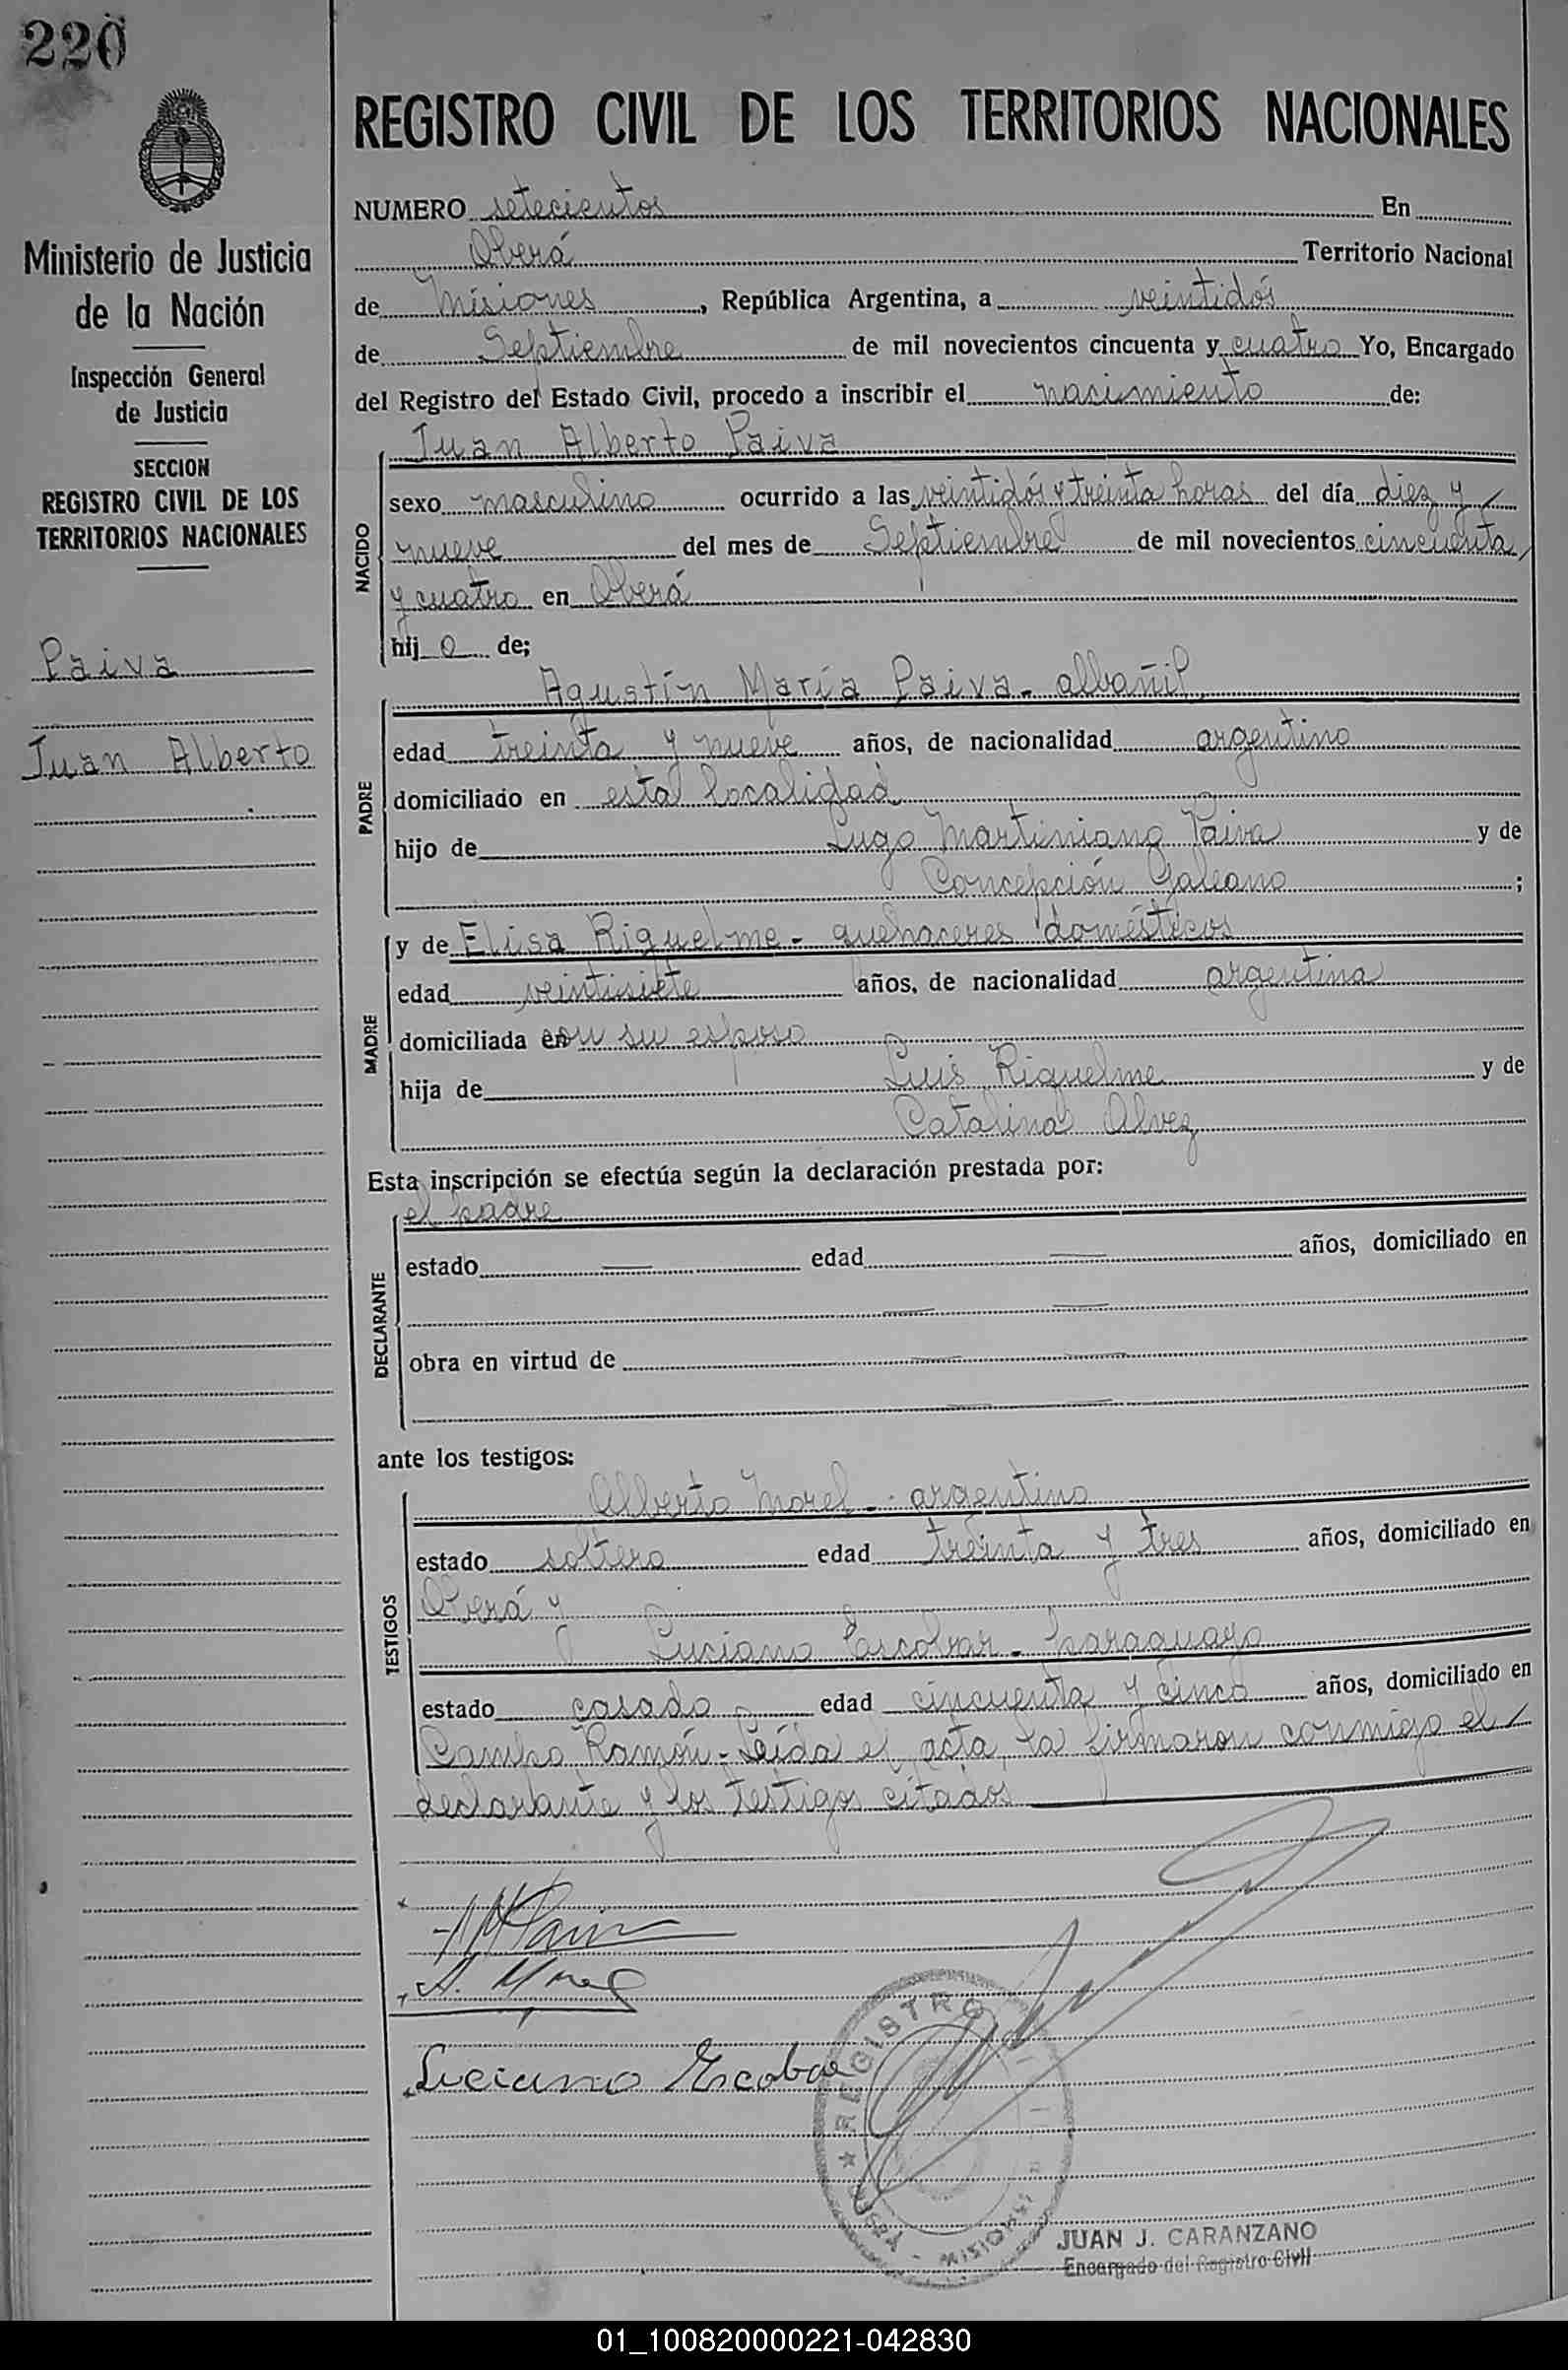 220
REGISTRO CIVIL DE LOS TERRITORIOS NACIONALES
Ministerio de Justicia
de la Nación
Inspección General
de Justicia
SECCION
REGISTRO CIVIL DE LOS
TERRITORIOS NACIONALES
Paiva
Juan Alberto
NUMERO setecientos En
Oberá Territorio Nacional
de Misiones, República Argentina, a veintidós
de Septiembre de mil novecientos cincuenta y cuatro Yo, Encargado
del Registro del Estado Civil, procedo a inscribir el nacimiento de:
NACIDO
Juan Alberto Paiva
sexo masculino ocurrido a las veintidós y treinta horas del día diez y
nueve del mes de Septiembre de mil novecientos cincuenta
y cuatro en Oberá
hij o de;
PADRE
Agustín María Paiva - albañil
edad treinta y nueve años, de nacionalidad argentino
domiciliado en esta localidad
hijo de Lugo Martiniano Paiva y de
Concepción Galeano ;
MADRE
y de Elisa Riquelme - quehaceres domésticos
edad veintisiete años, de nacionalidad argentina
domiciliada con su esposo
hija de Luis Riquelme y de
Catalina Alvez
Esta inscripción se efectúa según la declaración prestada por:
DECLARANTE
el padre
estado — edad — años, domiciliado en
— —
obra en virtud de — —
— —
ante los testigos:
TESTIGOS
Alberto Morel - argentino
estado soltero edad treinta y tres años, domiciliado en
Oberá y
Luciano Escobar - paraguayo
estado casado edad cincuenta y cinco años, domiciliado en
Campo Ramón - Leída el acta, la firmaron conmigo el
declarante y los testigos citados
A. Morel
Luciano Escobar
REGISTRO
OBERÁ - MISIONES
JUAN J. CARANZANO
Encargado del Registro Civil
01_100820000221-042830